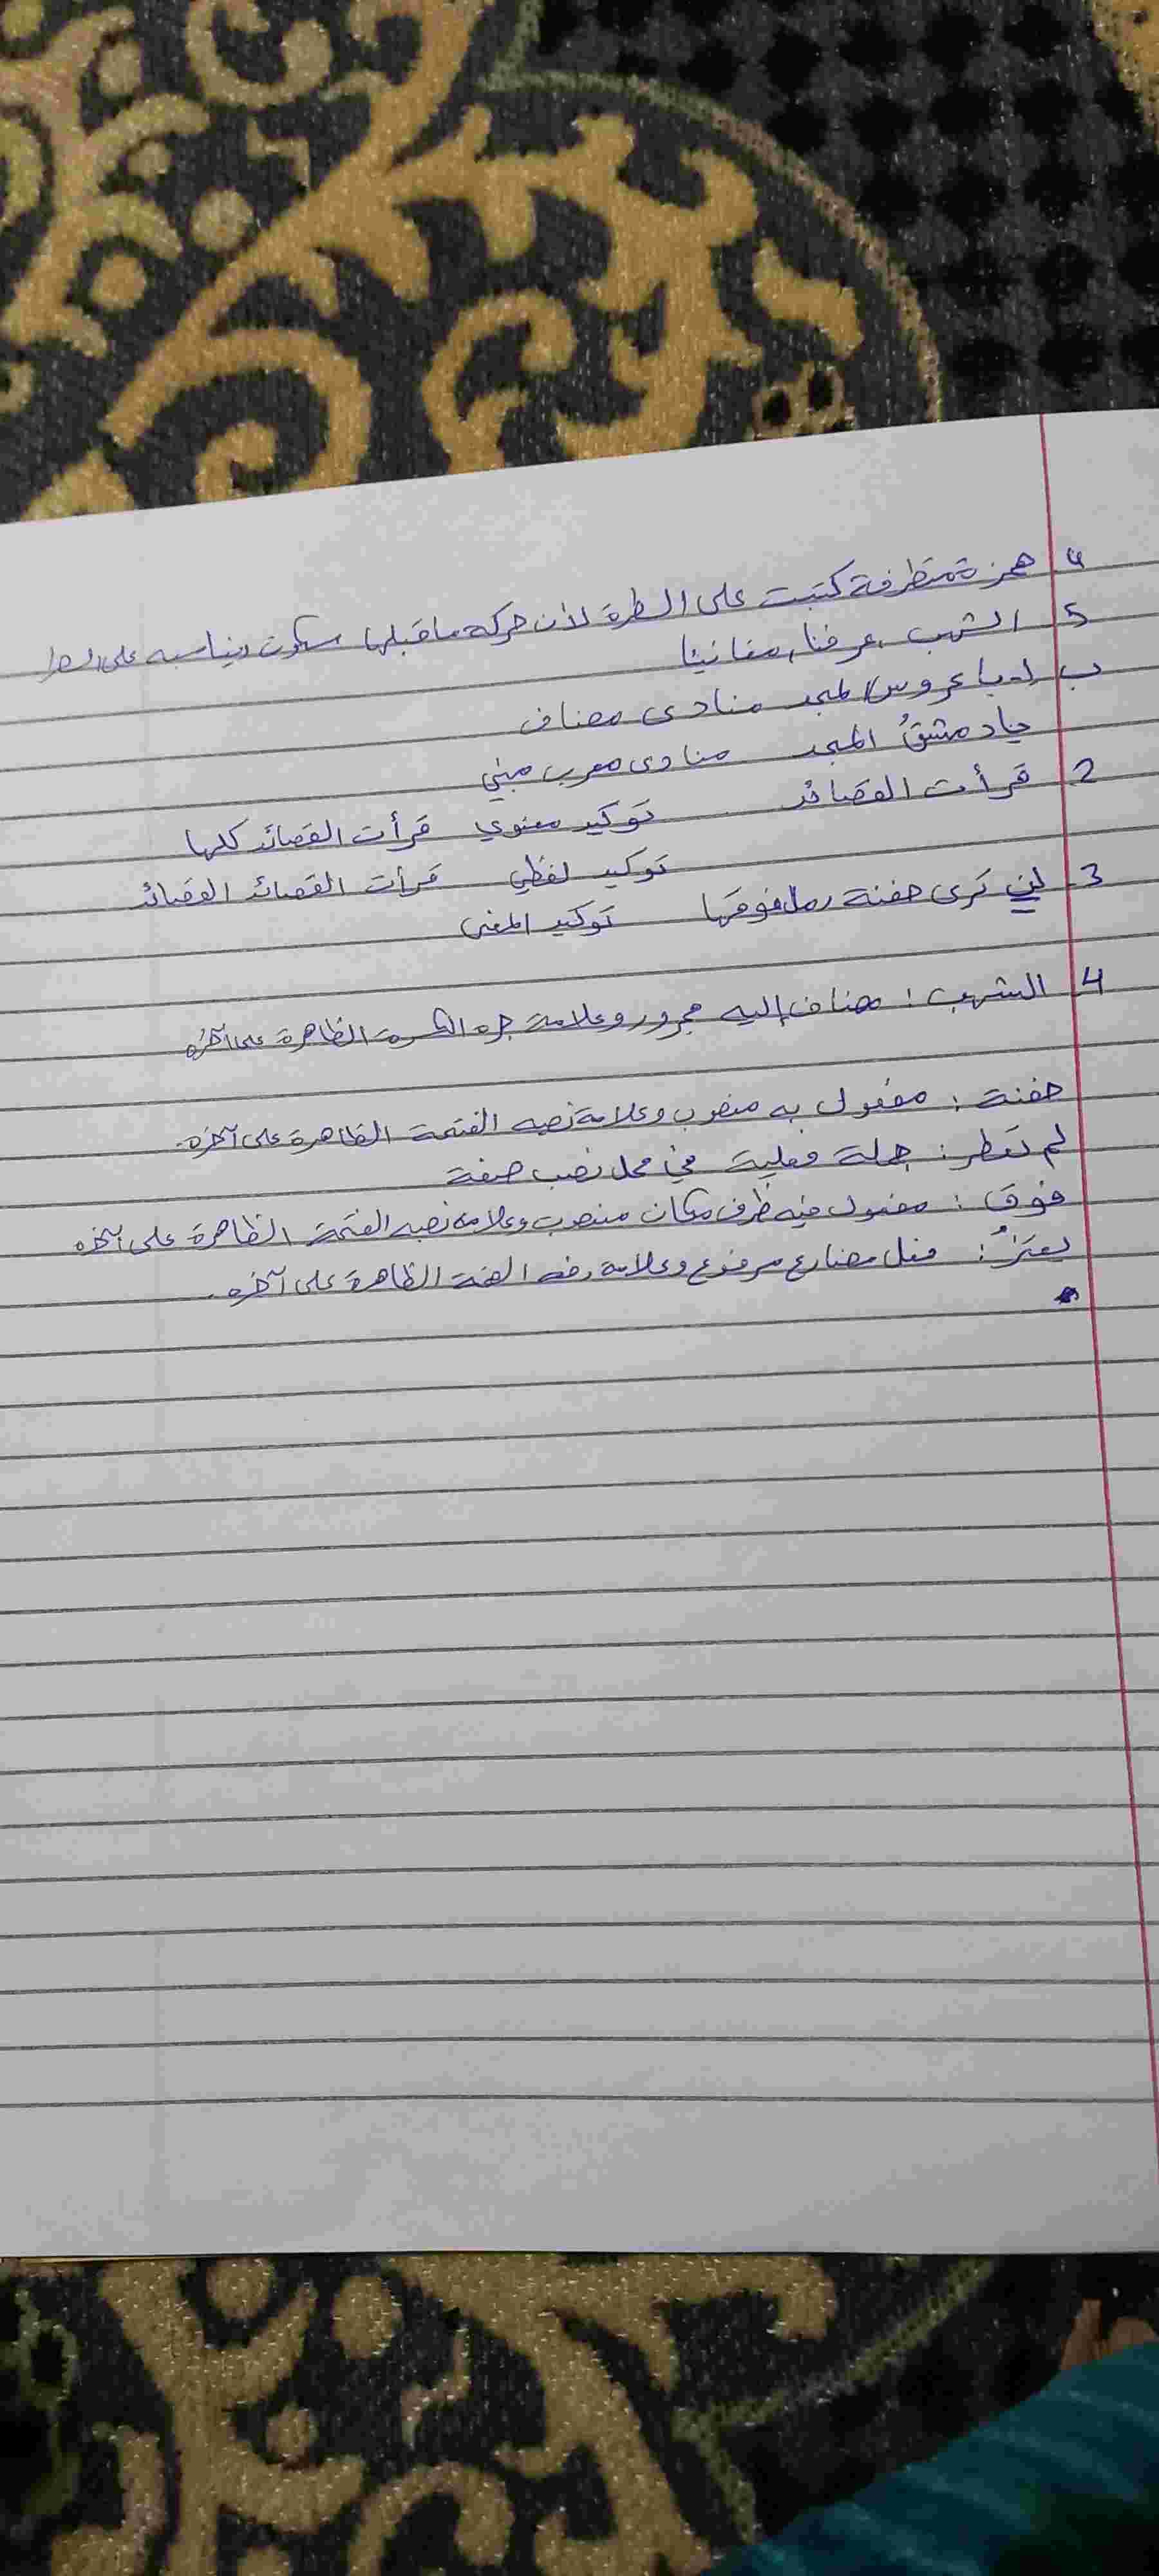 4 همزة متطرفة كتبت على السطر لأن حركة ما قبلها سكون ويناسبه على السطر
5 الشهب، عرفنا، مغانينا
ب 1- يا عروس المجد منادى مضاف
يا دمشقُ المجد منادى معرب مبني
2 قرأت القصائد توكيد معنوي قرأت القصائد كلها
توكيد لفظي قرأت القصائد القصائد
3 لن ترى حفنة رمل فوقها توكيد المغنى
4 الشهب : مضاف إليه مجرور وعلامة جره الكسرة الظاهرة على آخره
حفنة : مفعول به منصوب وعلامة نصبه الفتحة الظاهرة على آخره.
لم تعطر : جملة فعلية في محل نصب صفة
فوق : مفعول فيه ظرف مكان منصوب وعلامة نصبه الفتحة الظاهرة على آخره
يعتزُ : فعل مضارع مرفوع وعلامة رفعه الضمة الظاهرة على آخره.